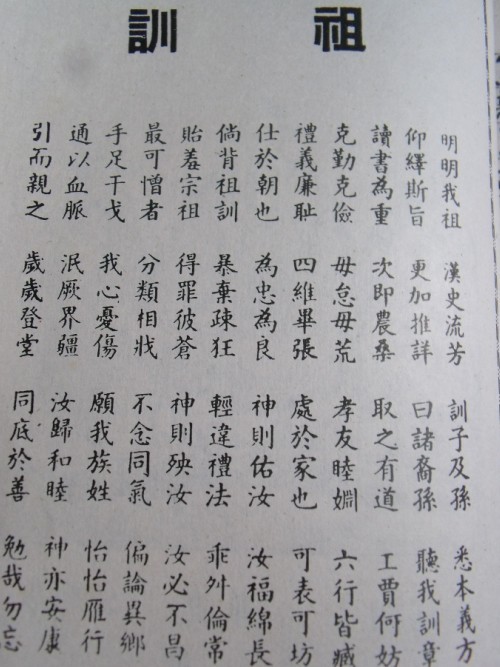 祖訓
明明我祖 漢史流芳 訓子及孫 悉本義方
仰繹斯旨 更加推詳 曰諸裔孫 聽我訓章
讀書為重 次即農桑 取之有道 工賈何妨
克勤克儉 毋怠毋荒 孝友睦婣 六行皆臧
禮義廉耻 四維畢張 處於家也 可表可坊
仕於朝也 為忠為良 神則佑汝 汝福綿長
倘背祖訓 暴棄疎狂 輕違禮法 乖舛倫常
貽羞宗祖 得罪彼蒼 神則殃汝 汝必不昌
最可憎者 分類相戕 不念同氣 偏論異鄉
手足干戈 我心憂傷 願我族姓 怡怡雁行
通以血脈 泯厥界疆 汝歸和睦 神亦安康
引而親之 歲歲登堂 同底於善 勉哉勿忘